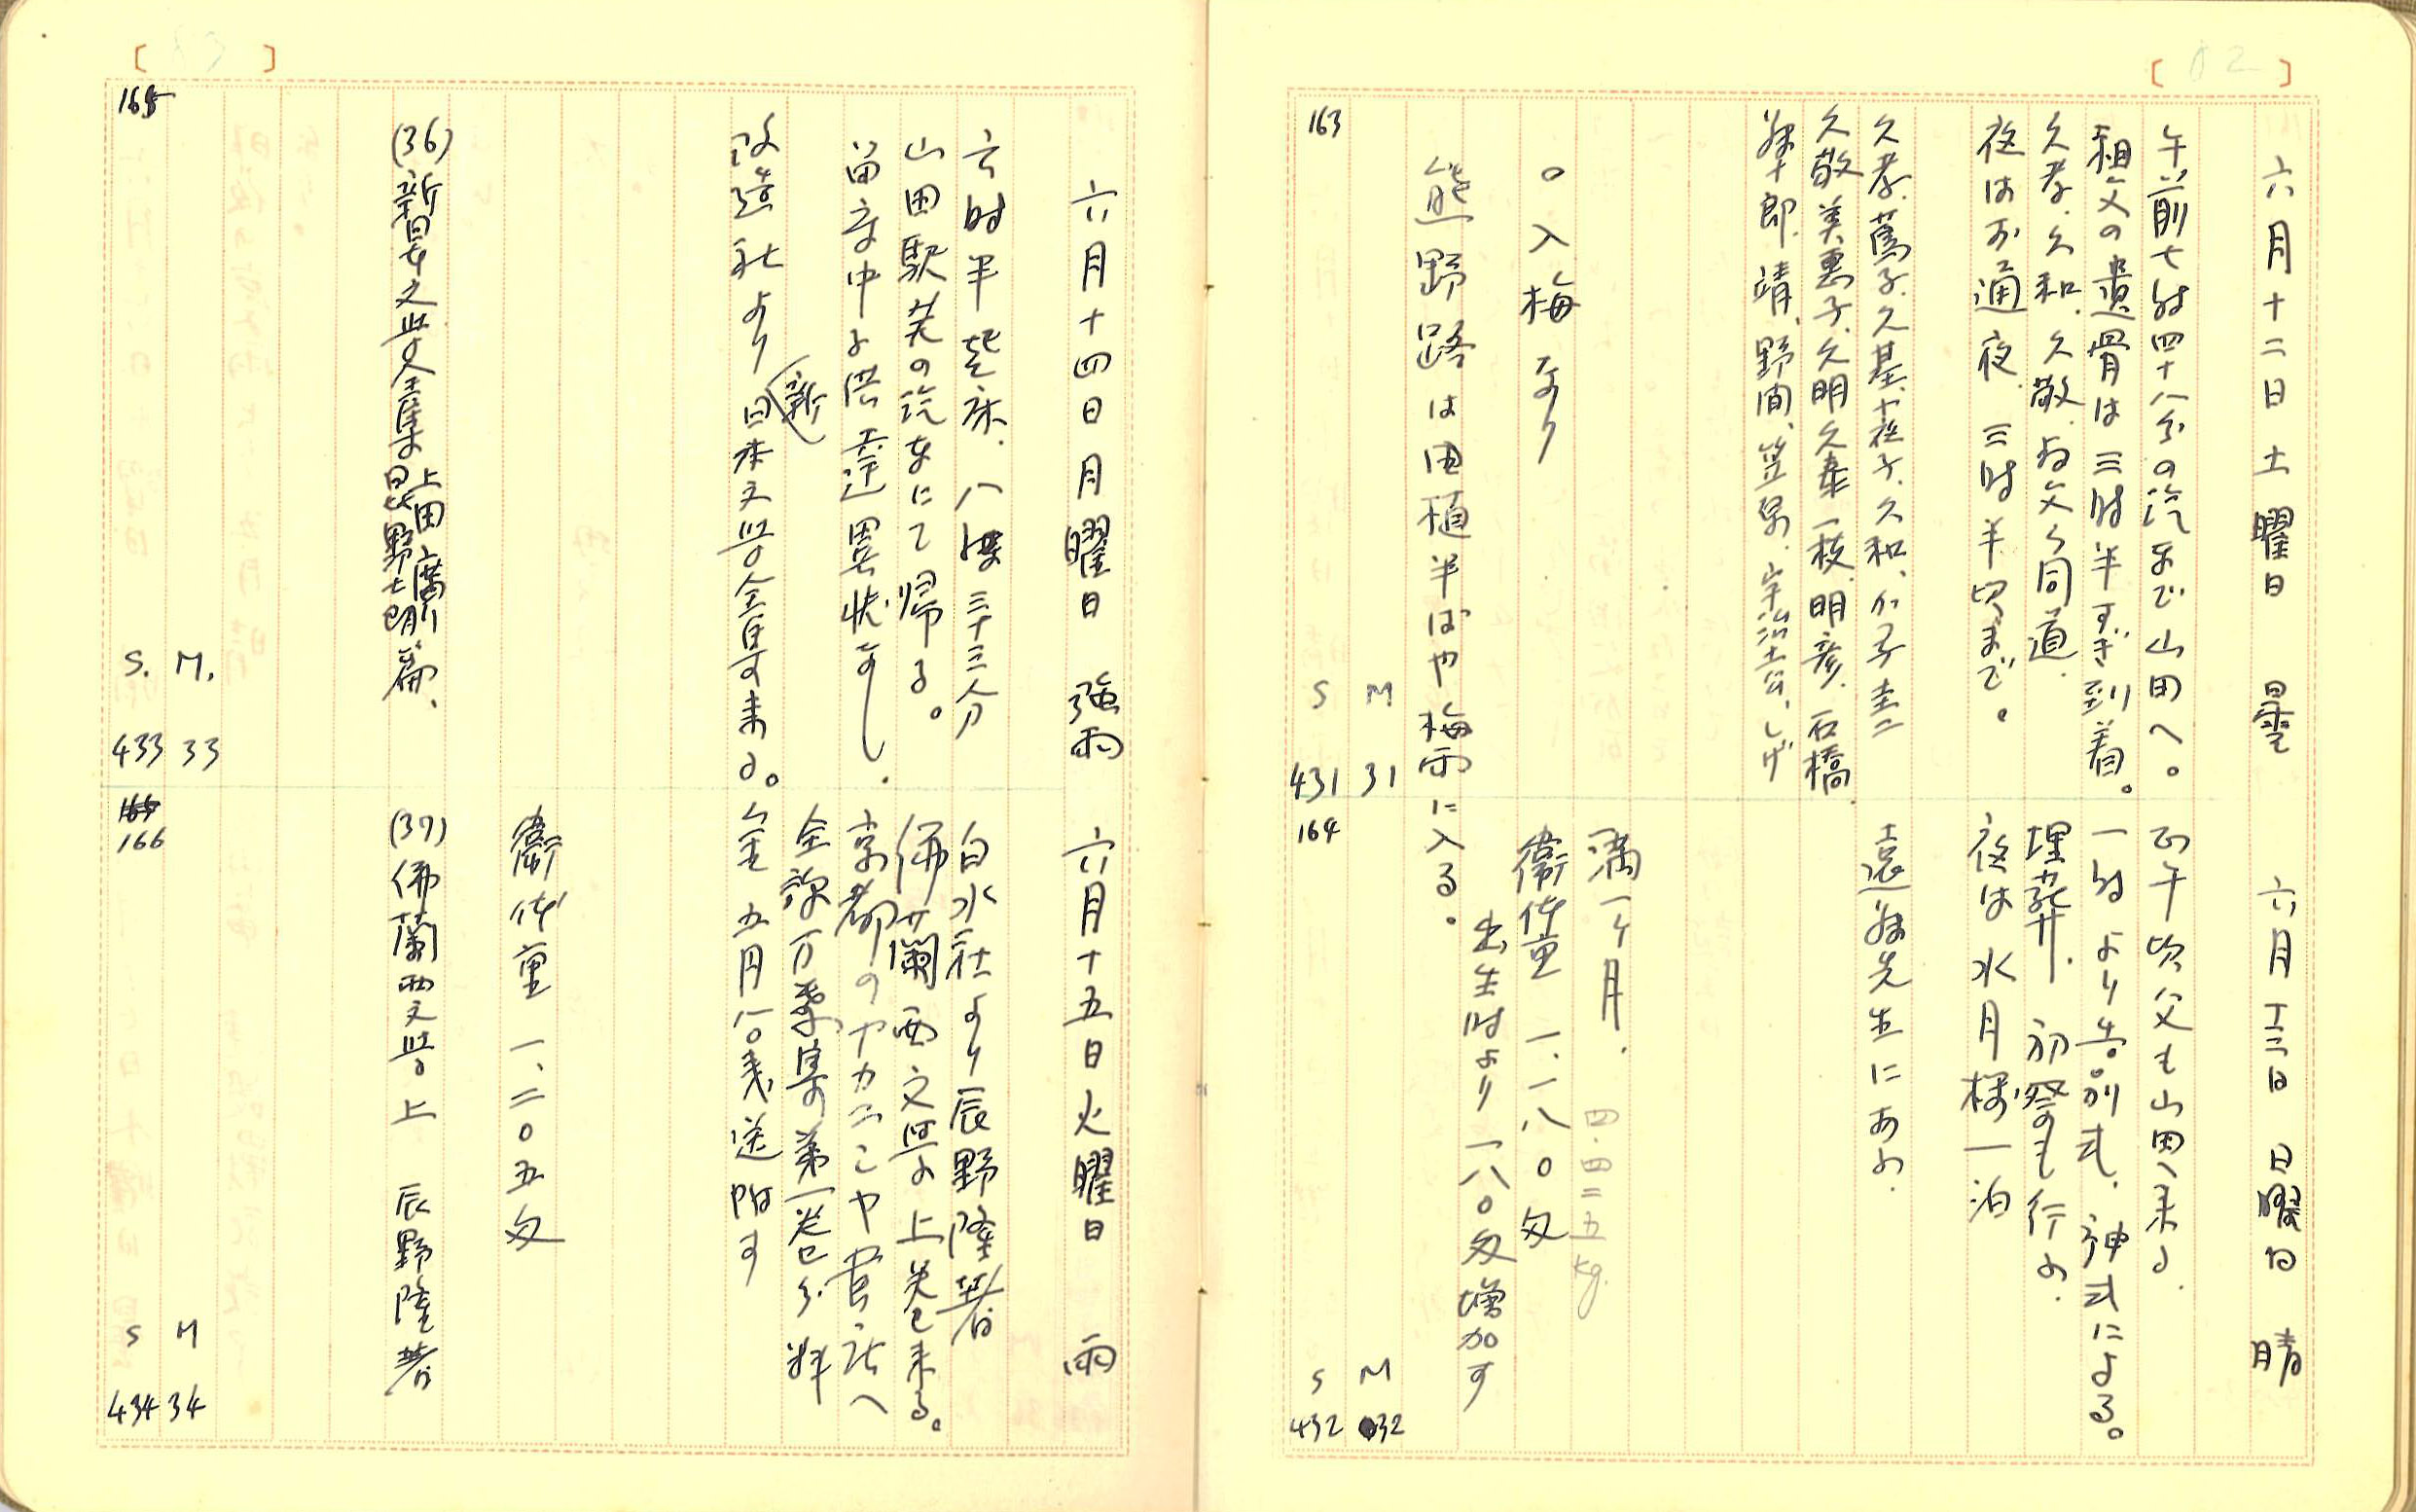 六月十二日 土曜日 曇
午前七時四十八分の汽車で山田へ。
祖父の遺骨は三時半すぎ到着。
久孝、久和、久敬、父同道
夜はお通夜 三時半頃まで。
久孝、蔦子、久基、
久敬 美恵子、久明 久泰 一枝、明彦、石橋
郎、靖、野間、笠泉、宇治土公、しげ
○入梅なり
熊野路は田植半ばや梅雨に入る。
163
M 31
S 431
六月十三日 日曜日 晴
正午頃父も山田へ来る.
一時より告別式. 神式による。
埋葬. 初祭も行ふ.
夜は水月楼一泊
遠藤先生にあふ.
満一ヶ月.
四.四二五kg.
衛体重 一.一八〇匁
出生時より一八〇匁増加す
164
M 32
S 432
六月十四日 月曜日 強雨
六時半起床. 八時三十三分
山田駅発の汽車にて帰る。
留守中
改造社より(新)日本文学全集来る。
(36) 新日本文学全集 上田廣 日比野士朗 篇、
165
M. 33
S. 433
六月十五日 火曜日 雨
白水社より辰野隆著
佛蘭西文学上巻来る。
京都のヤカニこや書店へ
全訳万葉集第一巻分料
金 五円八〇銭送附す
衛体重 一、二〇五匁
(37) 佛蘭西文学 上 辰野隆著
166
M 34
S 434